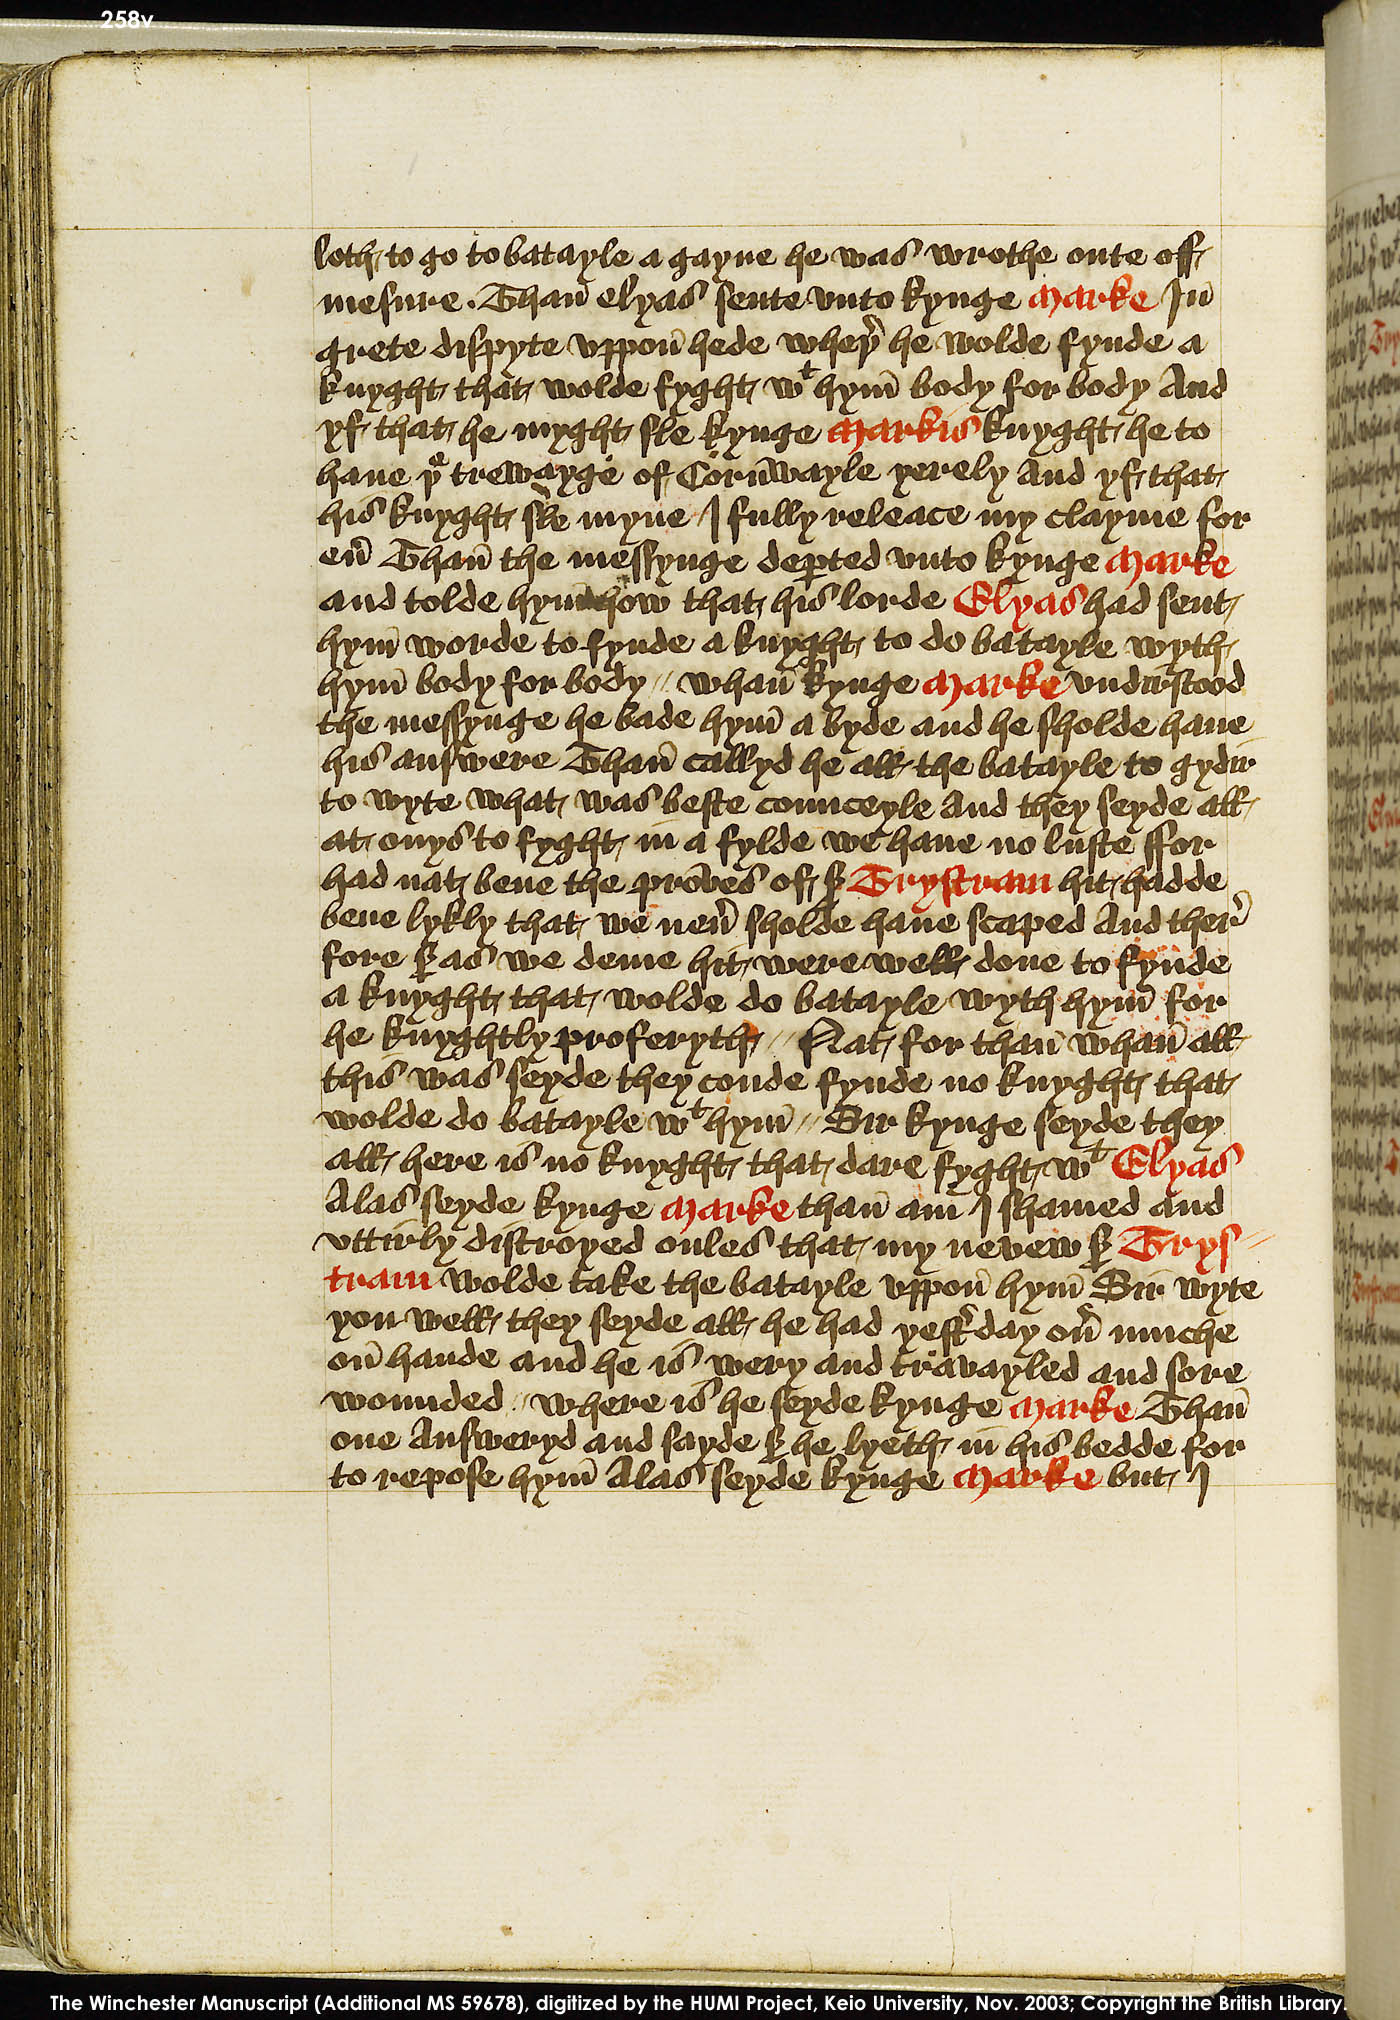 258v
loth to go to batayle a gayne he was wrothe oute off
mesure. Than̄ elyas sente vnto kynge Marke In̄
grete dispyte vppon̄ hede wheþ̉ he wolde fynde a
knyght that wolde fyght wᵗ hym̄ body for body And
yf that he myght sle kynge Markis knyght he to
haue þᵉ trewayge of Cornwayle yerely And yf that
his knyght sle myne I fully releace my clayme for
eủ Than̄ the messynge deꝑted vnto kynge Marke
and tolde hym̄ how that his lorde Elyas had sent
hym̄ worde to fynde a knyght to do batayle wyth
hym̄ body for body // whan̄ kynge Marke vndirstood
the messynge he bade hym̄ a byde and he sholde haue
his answere Than̄ callyd he all the batayle to gydir
to wyte what was beste counceyle And they seyde all
at onys to fyght in a fylde we haue no luste ffor
had nat bene the prōves of sꝑ Trystram hit hadde
bene lykly that we neủ sholde haue scaped And ther̉
fore sꝑ as we deme hit were well done to fynde
a knyght that wolde do batayle wyth hym̄ for
he knyghtly proferyth // Nat for than̄ whan̄ all
this was seyde they coude fynde no knyght that
wolde do batayle wᵗ hym̄ // Sir kynge seyde they
all here is no knyght that dare fyght wᵗ Elyas
Alas seyde kynge Marke than̄ am I shamed and
vttirly distroyed onles that my nevew sꝑ Trys=
tram wolde take the batayle vppon̄ hym̄ Sir wyte
you well they seyde all he had yest̉day oủ muche
on̄ hande and he is wery and travayled and sore
wounded // where is he seyde kynge Marke Than̄
one Answeryd and sayde sꝑ he lyeth in his bedde for
to repose hym̄ Alas seyde kynge Marke but I
The Winchester Manuscript (Additional MS 59678), digitized by the HUMI Project, Keio University, Nov. 2003; Copyright the British Library.